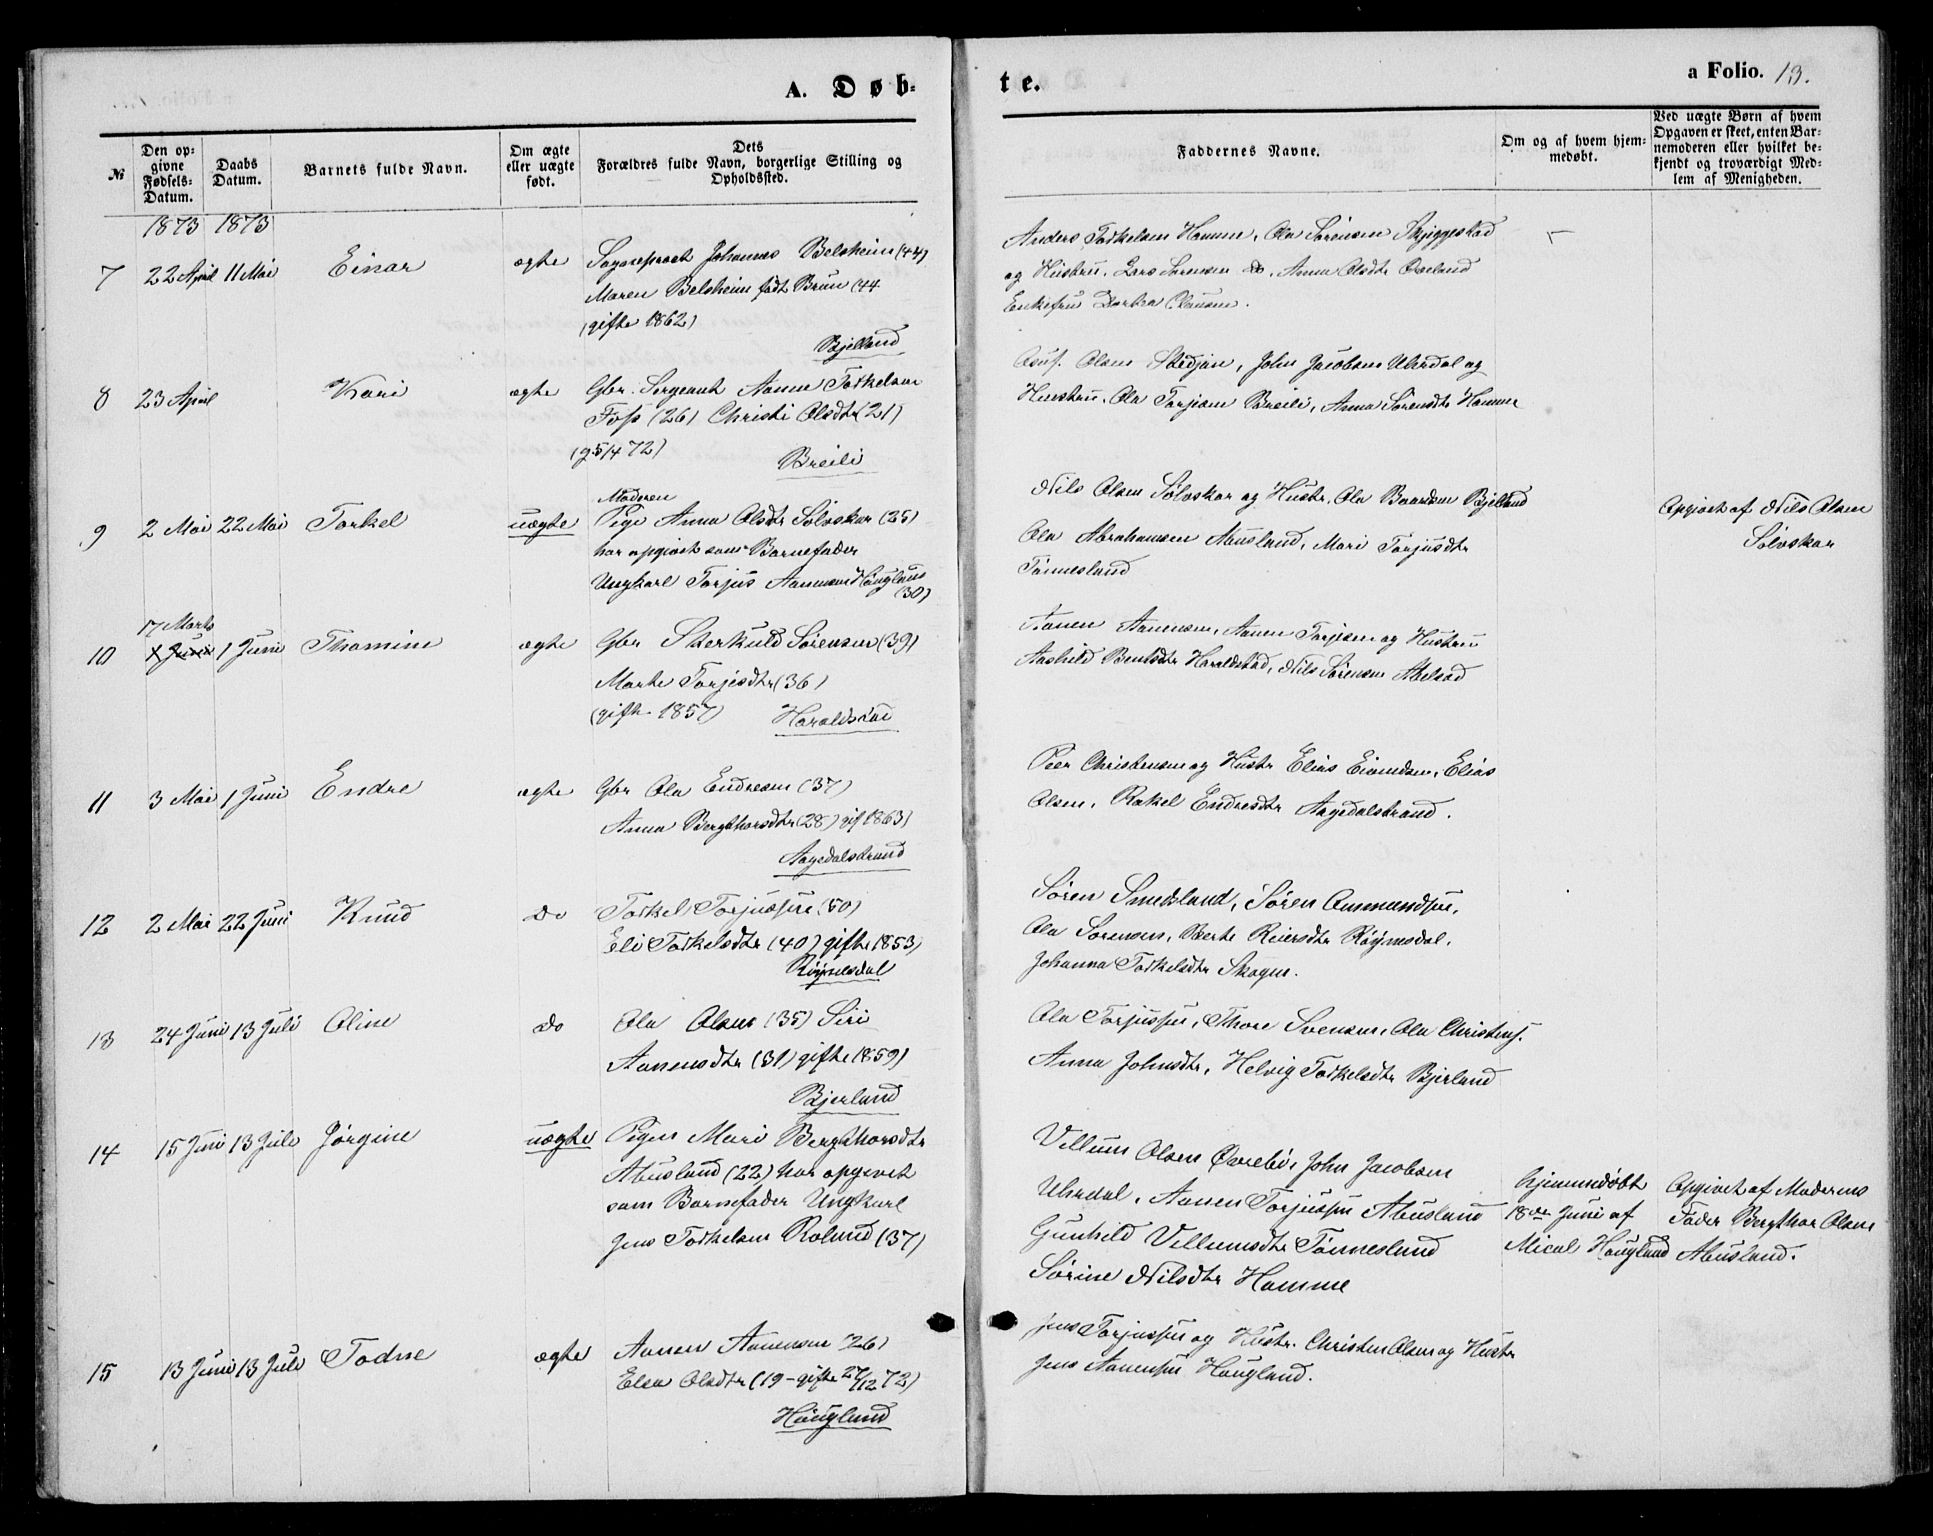 A. Døb-
te.
a Folio. 13.
№
Den op-
givne
Fødsels-
Datum.
Daabs
Datum.
Barnets fulde Navn.
Om ægte
eller uægte
født.
Dets
Forældres fulde Navn, borgerlige Stilling og
Opholdssted.
Faddernes Navne.
Om og af hvem hjem-
medøbt.
Ved uægte Børn af hvem
Opgaven er skeet, enten Bar-
nemoderen eller hvilket be-
kjendt og troværdigt Med-
lem af Menigheden.
1873 1873
7 22 April 11 Mai Einar ægte Sogneprest Johannes Belsheim (44)
Maren Belsheim født Brun (44
(gifte 1862)
Bjelland
Anders Torkelsen Hamme, Ola Sørensen Skjeggestad
og Hustru, Lars Sørensen do, Anna Olsdtr Øveland
Enkefru Dorthea Clausen.
8 23 April Kari ægte Gbr. Sergeant Aanen Torkelsen
Foss (26) Christi Olsdtr (21)
(g 5/4 72)
Breili
Olsen Stedjan, John Jacobsen Uhrdal og
Hustru, Ola Torjisen Breili, Anna Sørensdtr Hamme
9 2 Mai 22 Mai Torkel uægte
Moderen
Pige Anna Olsdtr Sølvskar (25)
har opgivet som Barnefader
Ungkarl Torjus Aanensen Houglans
(30)
Nils Olsen Sølvskar og Hustr, Ola Baardsen Bjelland
Ola Abrahamsen Abusland, Mari Torjusdtr
Tønnesland
Opgivet af Nils Olsen
Sølvskar
17 Marts
10 1 Juni 1 Juni Thomine ægte Gbr Sterkuld Sørensen (39)
Marte Torjesdtr (36)
(gifte 1857) Haraldstad
Aanen Aanensen, Aanen Torjisen og Hustru
Aashild Bentsdtr Haraldstad, Nils Sørensen Abelsæd
11 3 Mai 1 Juni Endre ægte Gbr Ola Endresen (37)
Anna Bergthorsdtr (28) gif 1863)
Aagedalstrand
Peer Christensen og Hustr Elias Eivindsen, Elias
Olsen, Rakel Endresdtr Aagedalstrand.
12 2 Mai 22 Juni Knud do Torkel Torjussen (50)
Eli Torkelsdtr (40) gifte 1853)
Røynesdal
Søren Smedsland, Søren Aanmundsen,
Ola Sørensen, Berte Reiersdtr Røynesdal.
Johanna Torkelsdtr Skogen.
13 24 Juni 13 Juli Oline do Ola Olsen (35) Siri
Aanensdtr (31) gifte 1859)
Bjerland
Ola Torjussen, Thore Svensen, Ola Christens.
Anna Johnsdtr, Helvig Torkelsdtr Bjerland
14 15 Juni 13 Juli Jørgine uægte Pigen Mari Bergthorsdtr
Abusland (22) har opgivet
som Barnefader Ungkarl
Jens Torkelsen Roland (37)
Villum Olsen Øvrebø, John Jacobsen
Uhrdal, Aanen Torjussen Abusland
Gunhild Villumsdtr Tønnesland
Sørine Nilsdtr Hamme
hjemmedøbt
18de Juni af
Mical Hougland
Opgivet af Moderens
Fader Bergthor Olsen
Abusland.
15 13 Juni 13 Juli Todne ægte Aanen Aanensen 26)
Elsa Olsdtr (19 - gifte 27/12 72)
Hougland
Jens Torjussen og Hustr. Christen Olsen og Hustr
Jens Aanensen Hougland.